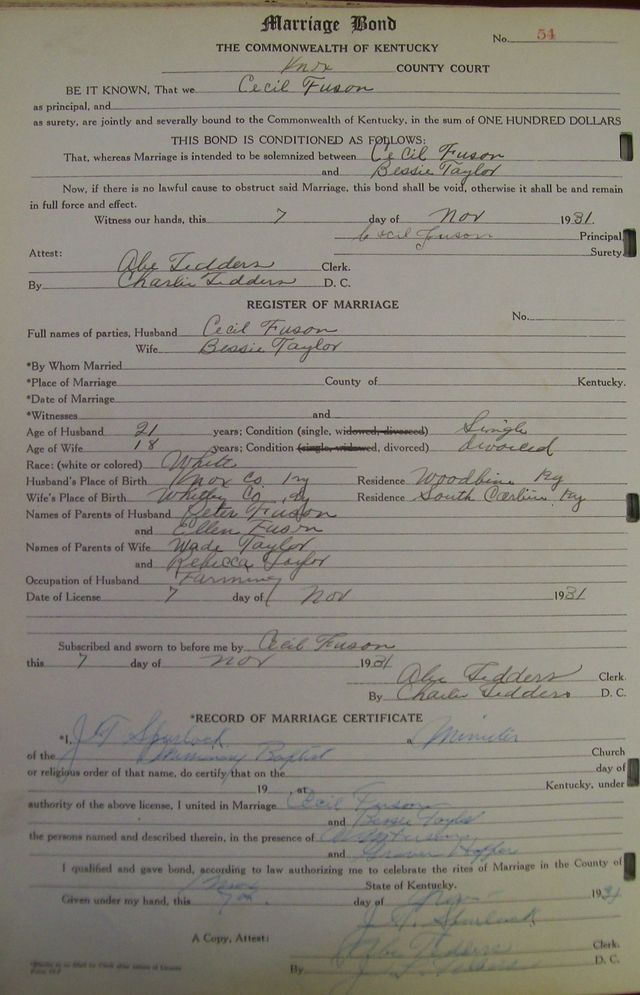 Marriage Bond
No. 54
THE COMMONWEALTH OF KENTUCKY
Knox COUNTY COURT
BE IT KNOWN, That we Cecil Fuson
as principal, and
as surety, are jointly and severally bound to the Commonwealth of Kentucky, in the sum of ONE HUNDRED DOLLARS
THIS BOND IS CONDITIONED AS FOLLOWS:
That, whereas Marriage is intended to be solemnized between Cecil Fuson
and Bessie Taylor
Now, if there is no lawful cause to obstruct said Marriage, this bond shall be void, otherwise it shall be and remain
in full force and effect.
Witness our hands, this 7 day of Nov 1931.
Cecil Fuson Principal
Surety.
Attest:
Abe Tedders Clerk.
By Charlie Tedders D. C.
REGISTER OF MARRIAGE
No.
Full names of parties, Husband Cecil Fuson
Wife Bessie Taylor
*By Whom Married
*Place of Marriage County of Kentucky.
*Date of Marriage
*Witnesses and
Age of Husband 21 years; Condition (single, widowed, divorced) Single
Age of Wife 18 years; Condition (single, widowed, divorced) divorced
Race: (white or colored) White
Husband's Place of Birth Knox Co. Ky Residence Woodbine Ky
Wife's Place of Birth Whitley Co. Ky Residence South Corbin Ky
Names of Parents of Husband Peter Fuson
and Ellen Fuson
Names of Parents of Wife Wade Taylor
and Rebecca Taylor
Occupation of Husband Farming
Date of License 7 day of Nov 1931
Subscribed and sworn to before me by Cecil Fuson
this 7 day of Nov 1931
Abe Tedders Clerk.
By Charlie Tedders D. C.
*RECORD OF MARRIAGE CERTIFICATE
*I, J. T. Spurlock a Minister
of the Missionary Baptist Church
or religious order of that name, do certify that on the day of
19 , at Kentucky, under
authority of the above license, I united in Marriage Cecil Fuson
and Bessie Taylor
the persons named and described therein, in the presence of
and Grover
I qualified and gave bond, according to law authorizing me to celebrate the rites of Marriage in the County of
Knox State of Kentucky.
Given under my hand, this day of Nov 1931
J. T. Spurlock
A Copy, Attest:
Abe Tedders Clerk.
By D. C.